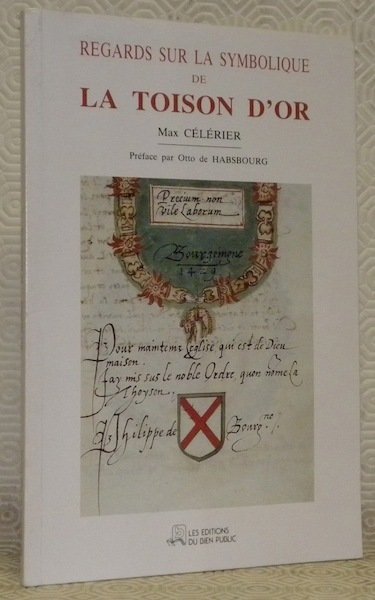 REGARDS SUR LA SYMBOLIQUE
DE
LA TOISON D'OR
Max CÉLÉRIER
Préface par Otto de HABSBOURG
Precium non
vile Laborum
Bourgongne
Pour maintenir leglise qui est de Dieu
maison.
Jay mis sus le noble Ordre, quon nome La
Thoyson,
Philippe de Bourg.ne
LES EDITIONS
DU BIEN PUBLIC